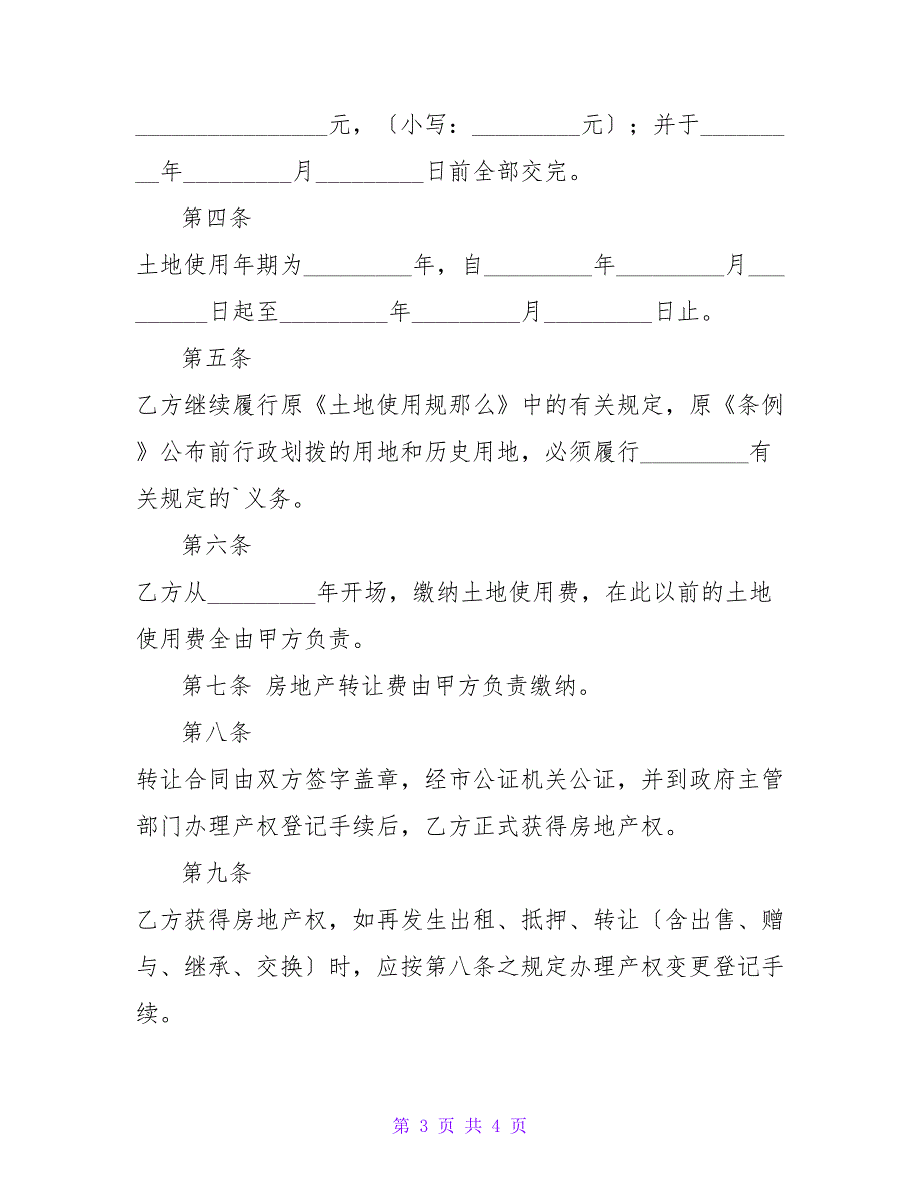 ________________元，〔小写：_________元〕；并于_______
__年_________月_________日前全部交完。
第四条
土地使用年期为_________年，自_________年_________月___
______日起至_________年_________月_________日止。
第五条
乙方继续履行原《土地使用规那么》中的有关规定，原《条例
》公布前行政划拨的用地和历史用地，必须履行_________有
关规定的`义务。
第六条
乙方从_________年开场，缴纳土地使用费，在此以前的土地
使用费全由甲方负责。
第七条 房地产转让费由甲方负责缴纳。
第八条
转让合同由双方签字盖章，经市公证机关公证，并到政府主管
部门办理产权登记手续后，乙方正式获得房地产权。
第九条
乙方获得房地产权，如再发生出租、抵押、转让〔含出售、赠
与、继承、交换〕时，应按第八条之规定办理产权变更登记手
续。
第 3 页 共 4 页